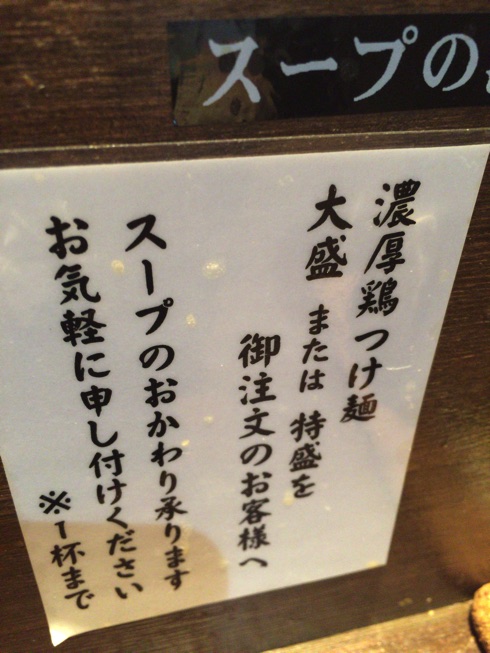 スープの
濃厚鶏つけ麺
大盛 または 特盛を
御注文のお客様へ
スープのおかわり承ります
お気軽に申し付けください
※1杯まで